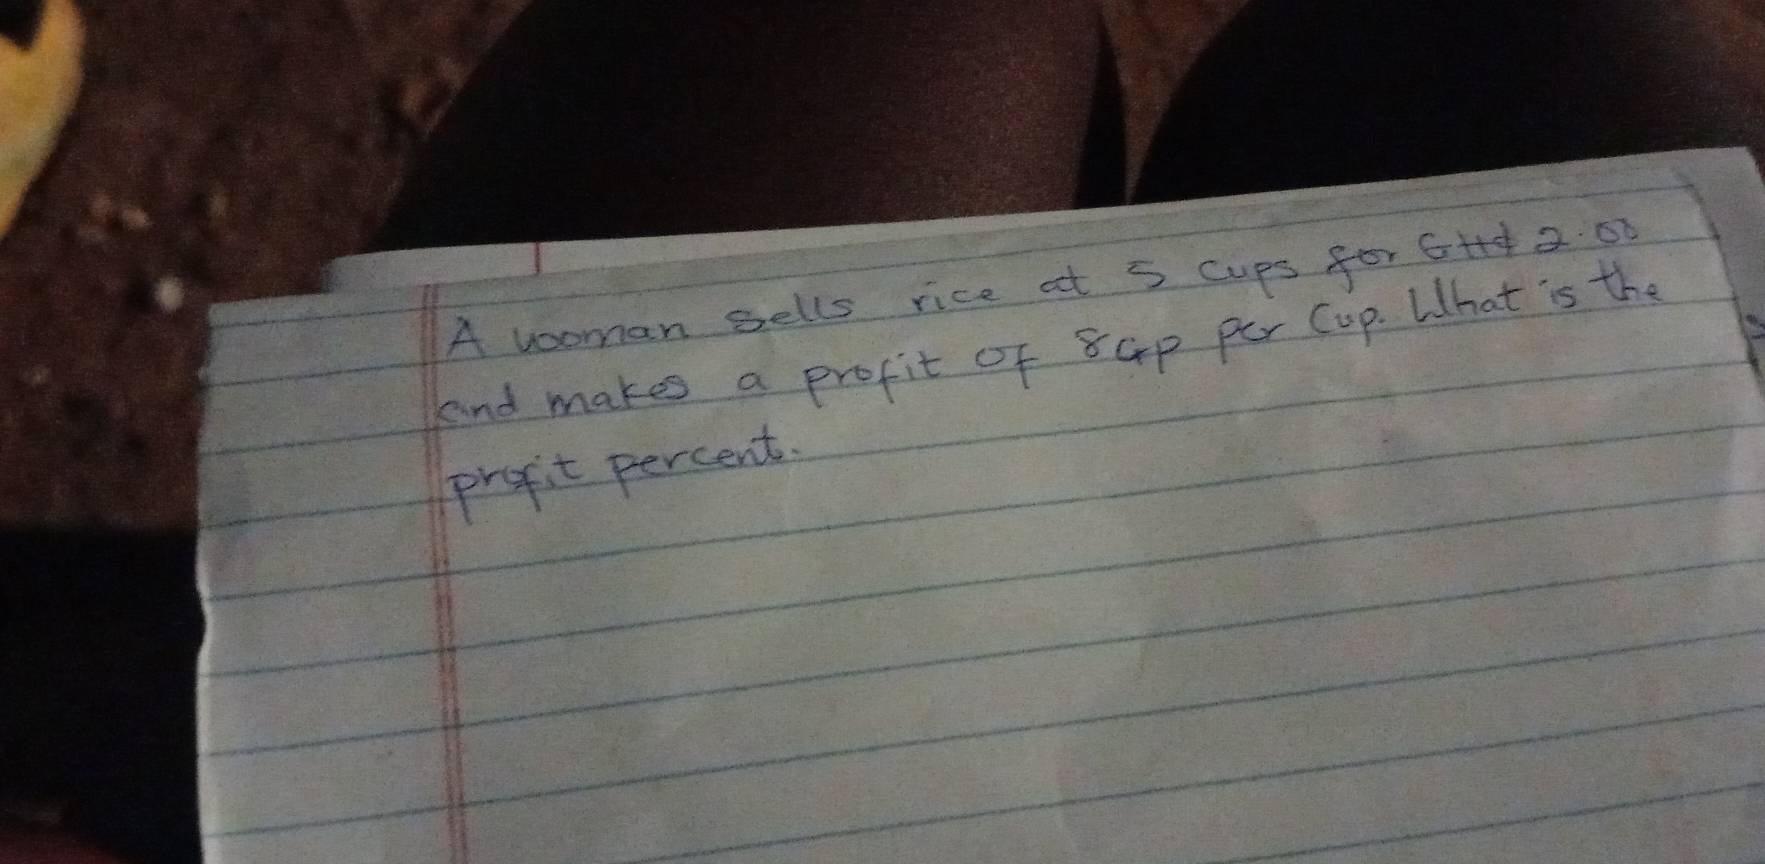 A wooman sells rice at 5 cups for GH¢ 2.00
and makes a profit of 8Gp per Cup. What is the
profit percent.